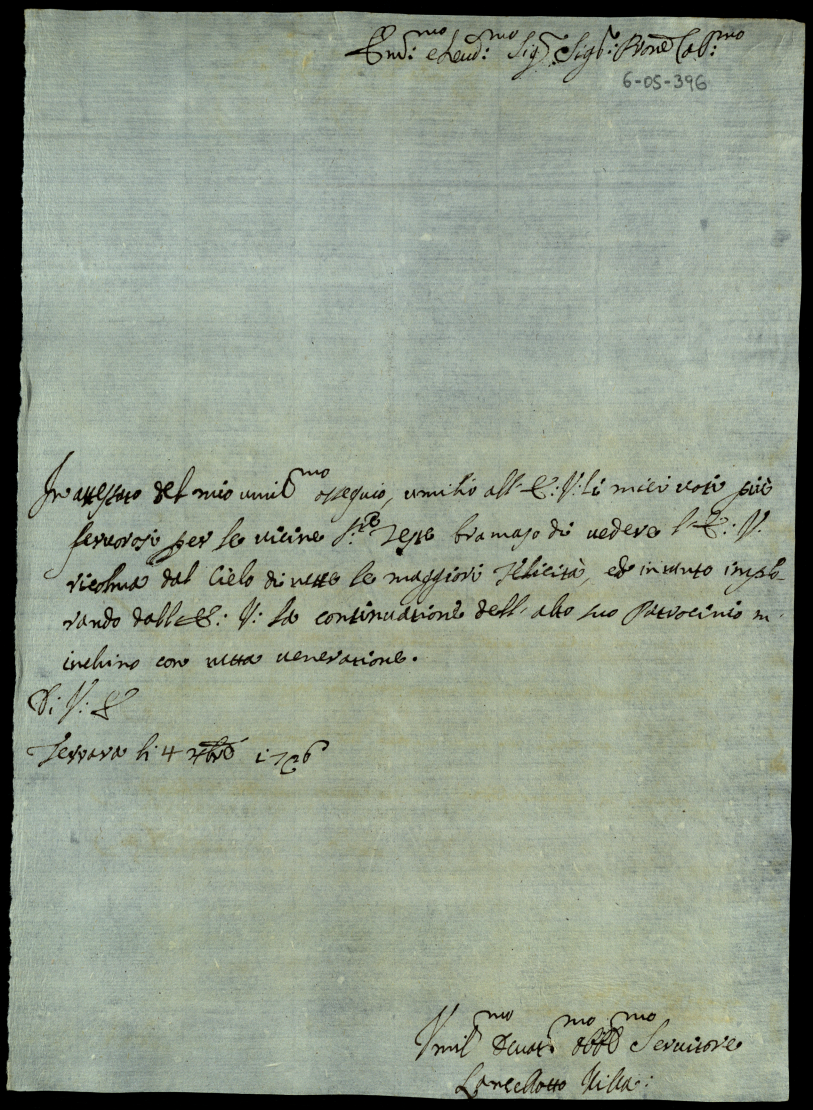 Em.mo e Reud.mo Sig.e Sig.r: Prone Col.mo
6-05-396
In attestato del mio umil.mo ossequio, umilio all'E: V: li miei uoti più
feruorosi per le uicine S.te Feste bramoso di uedere l'E: V:
ricolma dal Cielo di tutte le maggiori Felicità, ed intanto implo-
rando dall'E: V: la continuatione dell'alto suo Patrocinio m'
inchino con tutta ueneratione.
Di V: E
Ferrara li 4 Xbre
Vmil.mo Deuot.mo Obb.mo Seruitore
Lancellotto Villa: